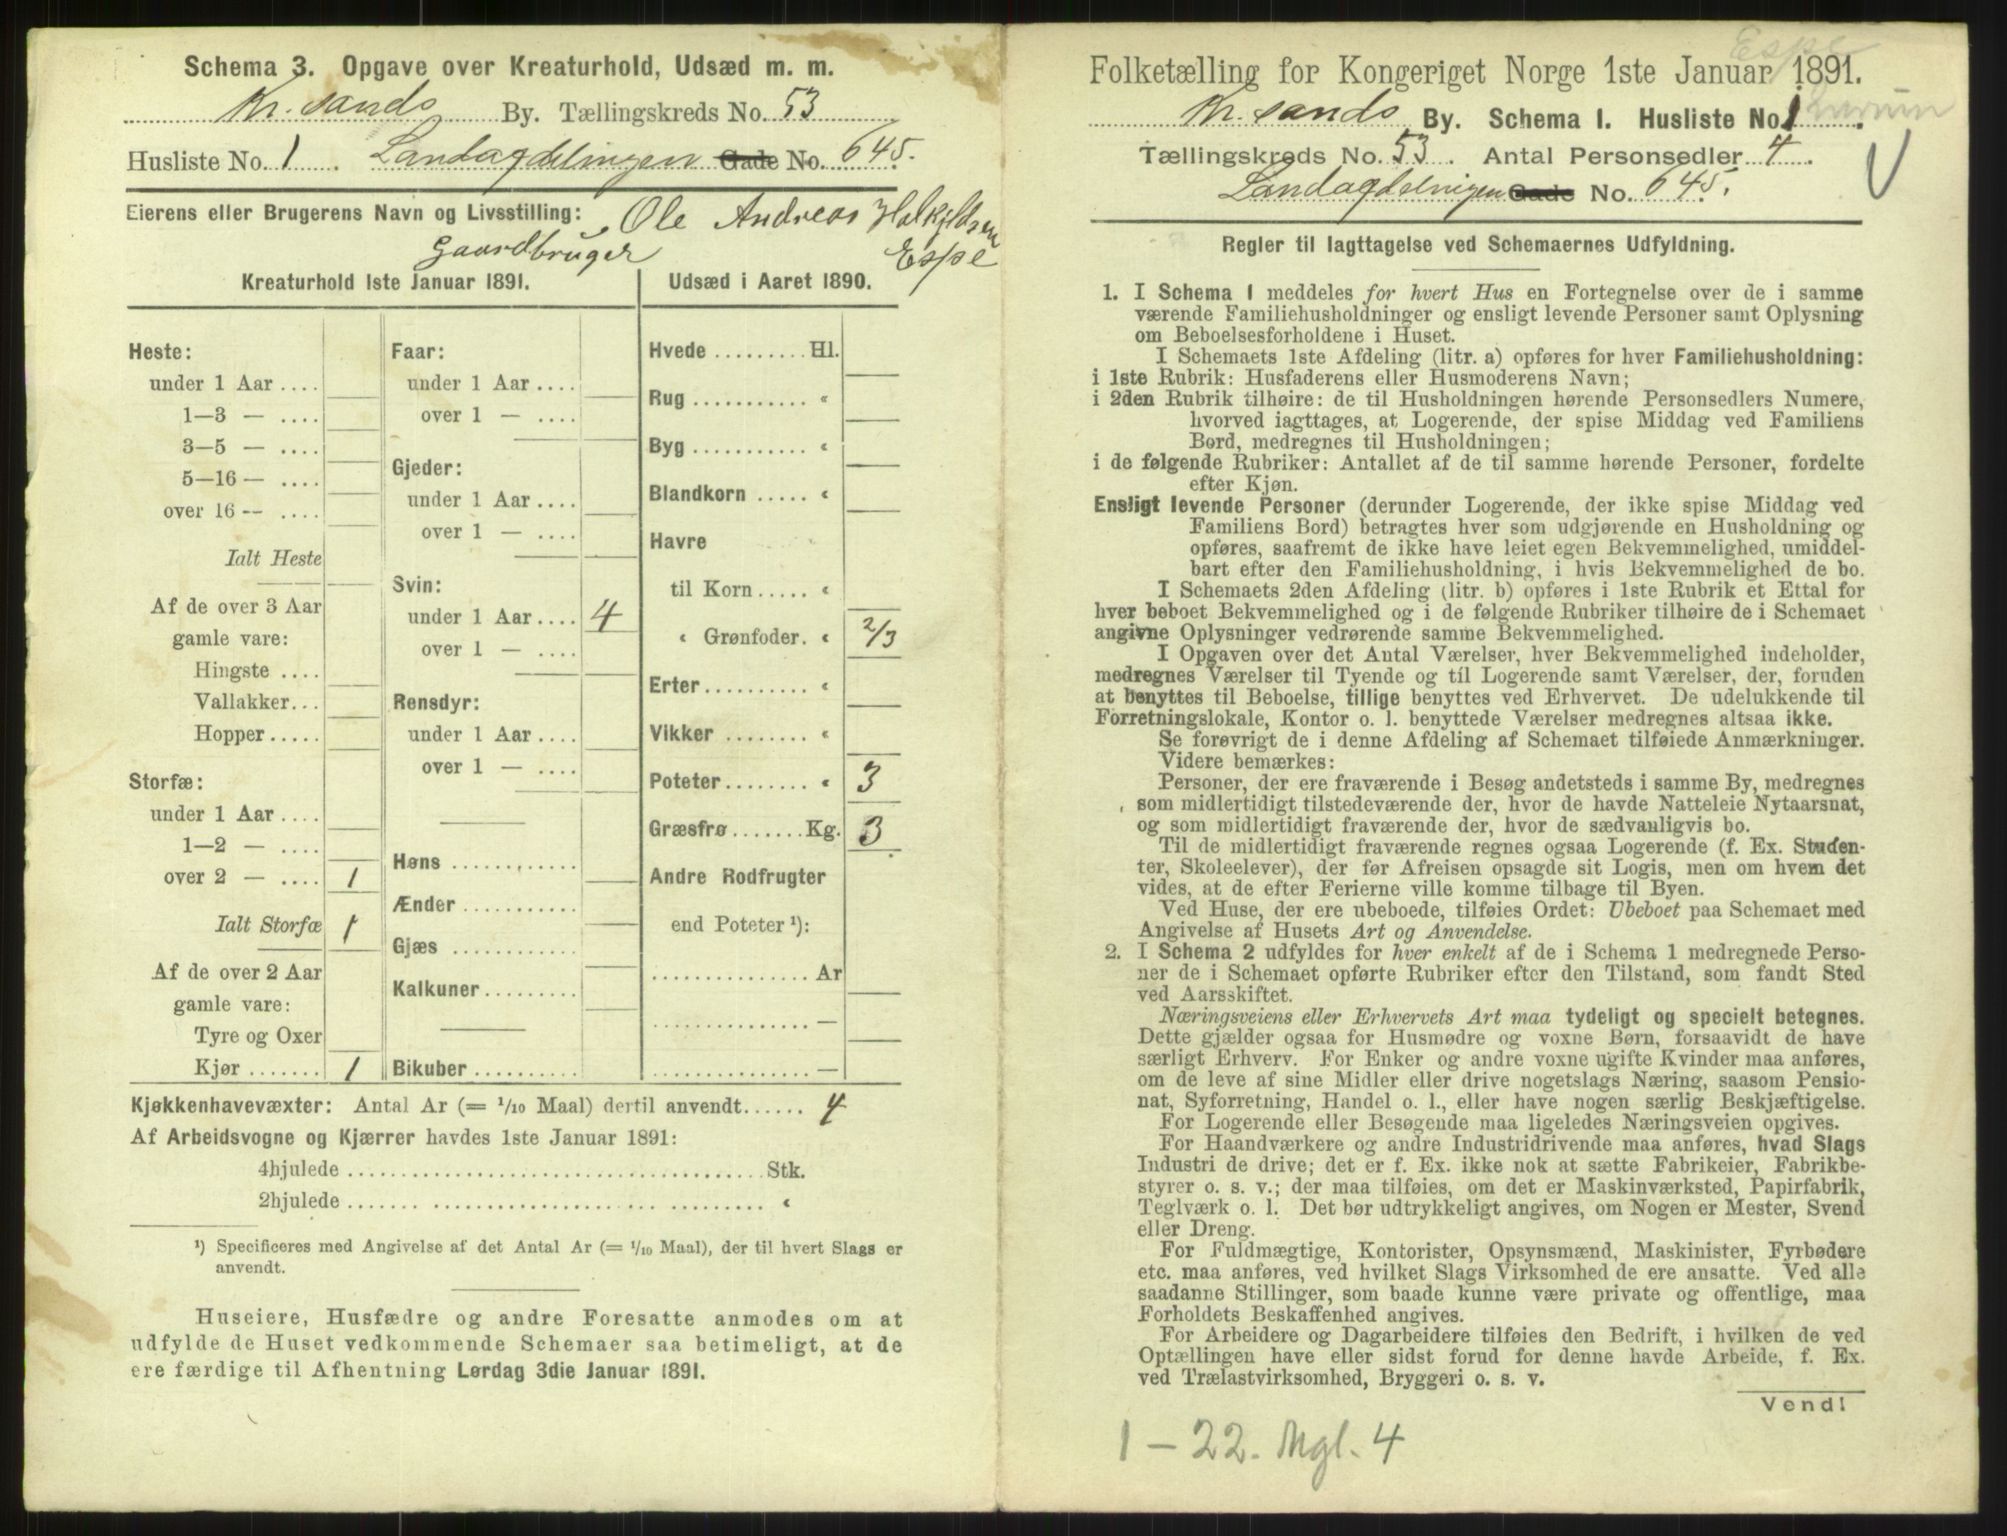 Schema 3. Opgave over Kreaturhold, Udsæd m. m.
Kr. sands By. Tællingskreds No. 53
Husliste No. 1 Landagdelingen Gade No. 645.
Eierens eller Brugerens Navn og Livsstilling: Ole Andreas
Gaardbruger Espe
Kreaturhold 1ste Januar 1891.
Heste:
under 1 Aar ....
1—3 — ....
3—5 — ....
5—16 — ....
over 16 — ....
Ialt Heste
Af de over 3 Aar
gamle vare:
Hingste ....
Vallakker...
Hopper.....
Storfæ:
under 1 Aar ....
1—2 — ....
over 2 — .... 1
Ialt Storfæ 1
Af de over 2 Aar
gamle vare:
Tyre og Oxer
Kjør ....... 1
Faar:
under 1 Aar ....
over 1 — ....
Gjeder:
under 1 Aar ....
over 1 — ....
Svin:
under 1 Aar .... 4
over 1 — ....
Rensdyr:
under 1 Aar ....
over 1 — ....
Høns ...........
Ænder ...........
Gjæs ...........
Kalkuner.........
Bikuber ..........
Udsæd i Aaret 1890.
Hvede ......... Hl.
Rug ........... «
Byg ........... «
Blandkorn ..... «
Havre
til Korn ..... «
« Grønfoder. « 2/3
Erter.......... «
Vikker ........ «
Poteter........ « 3
Græsfrø....... Kg. 3
Andre Rodfrugter
end Poteter ¹):
............... Ar
............... —
............... —
Kjøkkenhavevæxter: Antal Ar (= 1/10 Maal) dertil anvendt...... 4
Af Arbeidsvogne og Kjærrer havdes 1ste Januar 1891:
4hjulede ........................................ Stk.
2hjulede ........................................ «
¹) Specificeres med Angivelse af det Antal Ar (= 1/10 Maal), der til hvert Slags er
anvendt.
Huseiere, Husfædre og andre Foresatte anmodes om at
udfylde de Huset vedkommende Schemaer saa betimeligt, at de
ere færdige til Afhentning Lørdag 3die Januar 1891.
Espe
Folketælling for Kongeriget Norge 1ste Januar 1891.
Kr. sands By. Schema I. Husliste No. 1
Tællingskreds No. 53. Antal Personsedler 4.
Landagdelingen Gade No. 645.
Regler til Iagttagelse ved Schemaernes Udfyldning.
1. I Schema 1 meddeles for hvert Hus en Fortegnelse over de i samme
værende Familiehusholdninger og ensligt levende Personer samt Oplysning
om Beboelsesforholdene i Huset.
I Schemaets 1ste Afdeling (litr. a) opføres for hver Familiehusholdning:
i 1ste Rubrik: Husfaderens eller Husmoderens Navn;
i 2den Rubrik tilhøire: de til Husholdningen hørende Personsedlers Numere,
hvorved iagttages, at Logerende, der spise Middag ved Familiens
Bord, medregnes til Husholdningen;
i de følgende Rubriker: Antallet af de til samme hørende Personer, fordelte
efter Kjøn.
Ensligt levende Personer (derunder Logerende, der ikke spise Middag ved
Familiens Bord) betragtes hver som udgjørende en Husholdning og
opføres, saafremt de ikke have leiet egen Bekvemmelighed, umiddel-
bart efter den Familiehusholdning, i hvis Bekvemmelighed de bo.
I Schemaets 2den Afdeling (litr. b) opføres i 1ste Rubrik et Ettal for
hver beboet Bekvemmelighed og i de følgende Rubriker tilhøire de i Schemaet
angivne Oplysninger vedrørende samme Bekvemmelighed.
I Opgaven over det Antal Værelser, hver Bekvemmelighed indeholder,
medregnes Værelser til Tyende og til Logerende samt Værelser, der, foruden
at benyttes til Beboelse, tillige benyttes ved Erhvervet. De udelukkende til
Forretningslokale, Kontor o. l. benyttede Værelser medregnes altsaa ikke.
Se forøvrigt de i denne Afdeling af Schemaet tilføiede Anmærkninger.
Videre bemærkes:
Personer, der ere fraværende i Besøg andetsteds i samme By, medregnes
som midlertidigt tilstedeværende der, hvor de havde Natteleie Nytaarsnat,
og som midlertidigt fraværende der, hvor de sædvanligvis bo.
Til de midlertidigt fraværende regnes ogsaa Logerende (f. Ex. Studen-
ter, Skoleelever), der før Afreisen opsagde sit Logis, men om hvem det
vides, at de efter Ferierne ville komme tilbage til Byen.
Ved Huse, der ere ubeboede, tilføies Ordet: Ubeboet paa Schemaet med
Angivelse af Husets Art og Anvendelse.
2. I Schema 2 udfyldes for hver enkelt af de i Schema 1 medregnede Perso-
ner de i Schemaet opførte Rubriker efter den Tilstand, som fandt Sted
ved Aarsskiftet.
Næringsveiens eller Erhvervets Art maa tydeligt og specielt betegnes.
Dette gjælder ogsaa for Husmødre og voxne Børn, forsaavidt de have
særligt Erhverv. For Enker og andre voxne ugifte Kvinder maa anføres,
om de leve af sine Midler eller drive nogetslags Næring, saasom Pensio-
nat, Syforretning, Handel o. l., eller have nogen særlig Beskjæftigelse.
For Logerende eller Besøgende maa ligeledes Næringsveien opgives.
For Haandværkere og andre Industridrivende maa anføres, hvad Slags
Industri de drive; det er f. Ex. ikke nok at sætte Fabrikeier, Fabrikbe-
styrer o. s. v.; der maa tilføies, om det er Maskinværksted, Papirfabrik,
Teglværk o. l. Det bør udtrykkeligt angives, om Nogen er Mester, Svend
eller Dreng.
For Fuldmægtige, Kontorister, Opsynsmænd, Maskinister, Fyrbødere
etc. maa anføres, ved hvilket Slags Virksomhed de ere ansatte. Ved alle
saadanne Stillinger, som baade kunne være private og offentlige, maa
Forholdets Beskaffenhed angives.
For Arbeidere og Dagarbeidere tilføies den Bedrift, i hvilken de ved
Optællingen have eller sidst forud for denne havde Arbeide, f. Ex.
ved Trælastvirksomhed, Bryggeri o. s. v.
Vend!
1 – 22. Mgl. 4